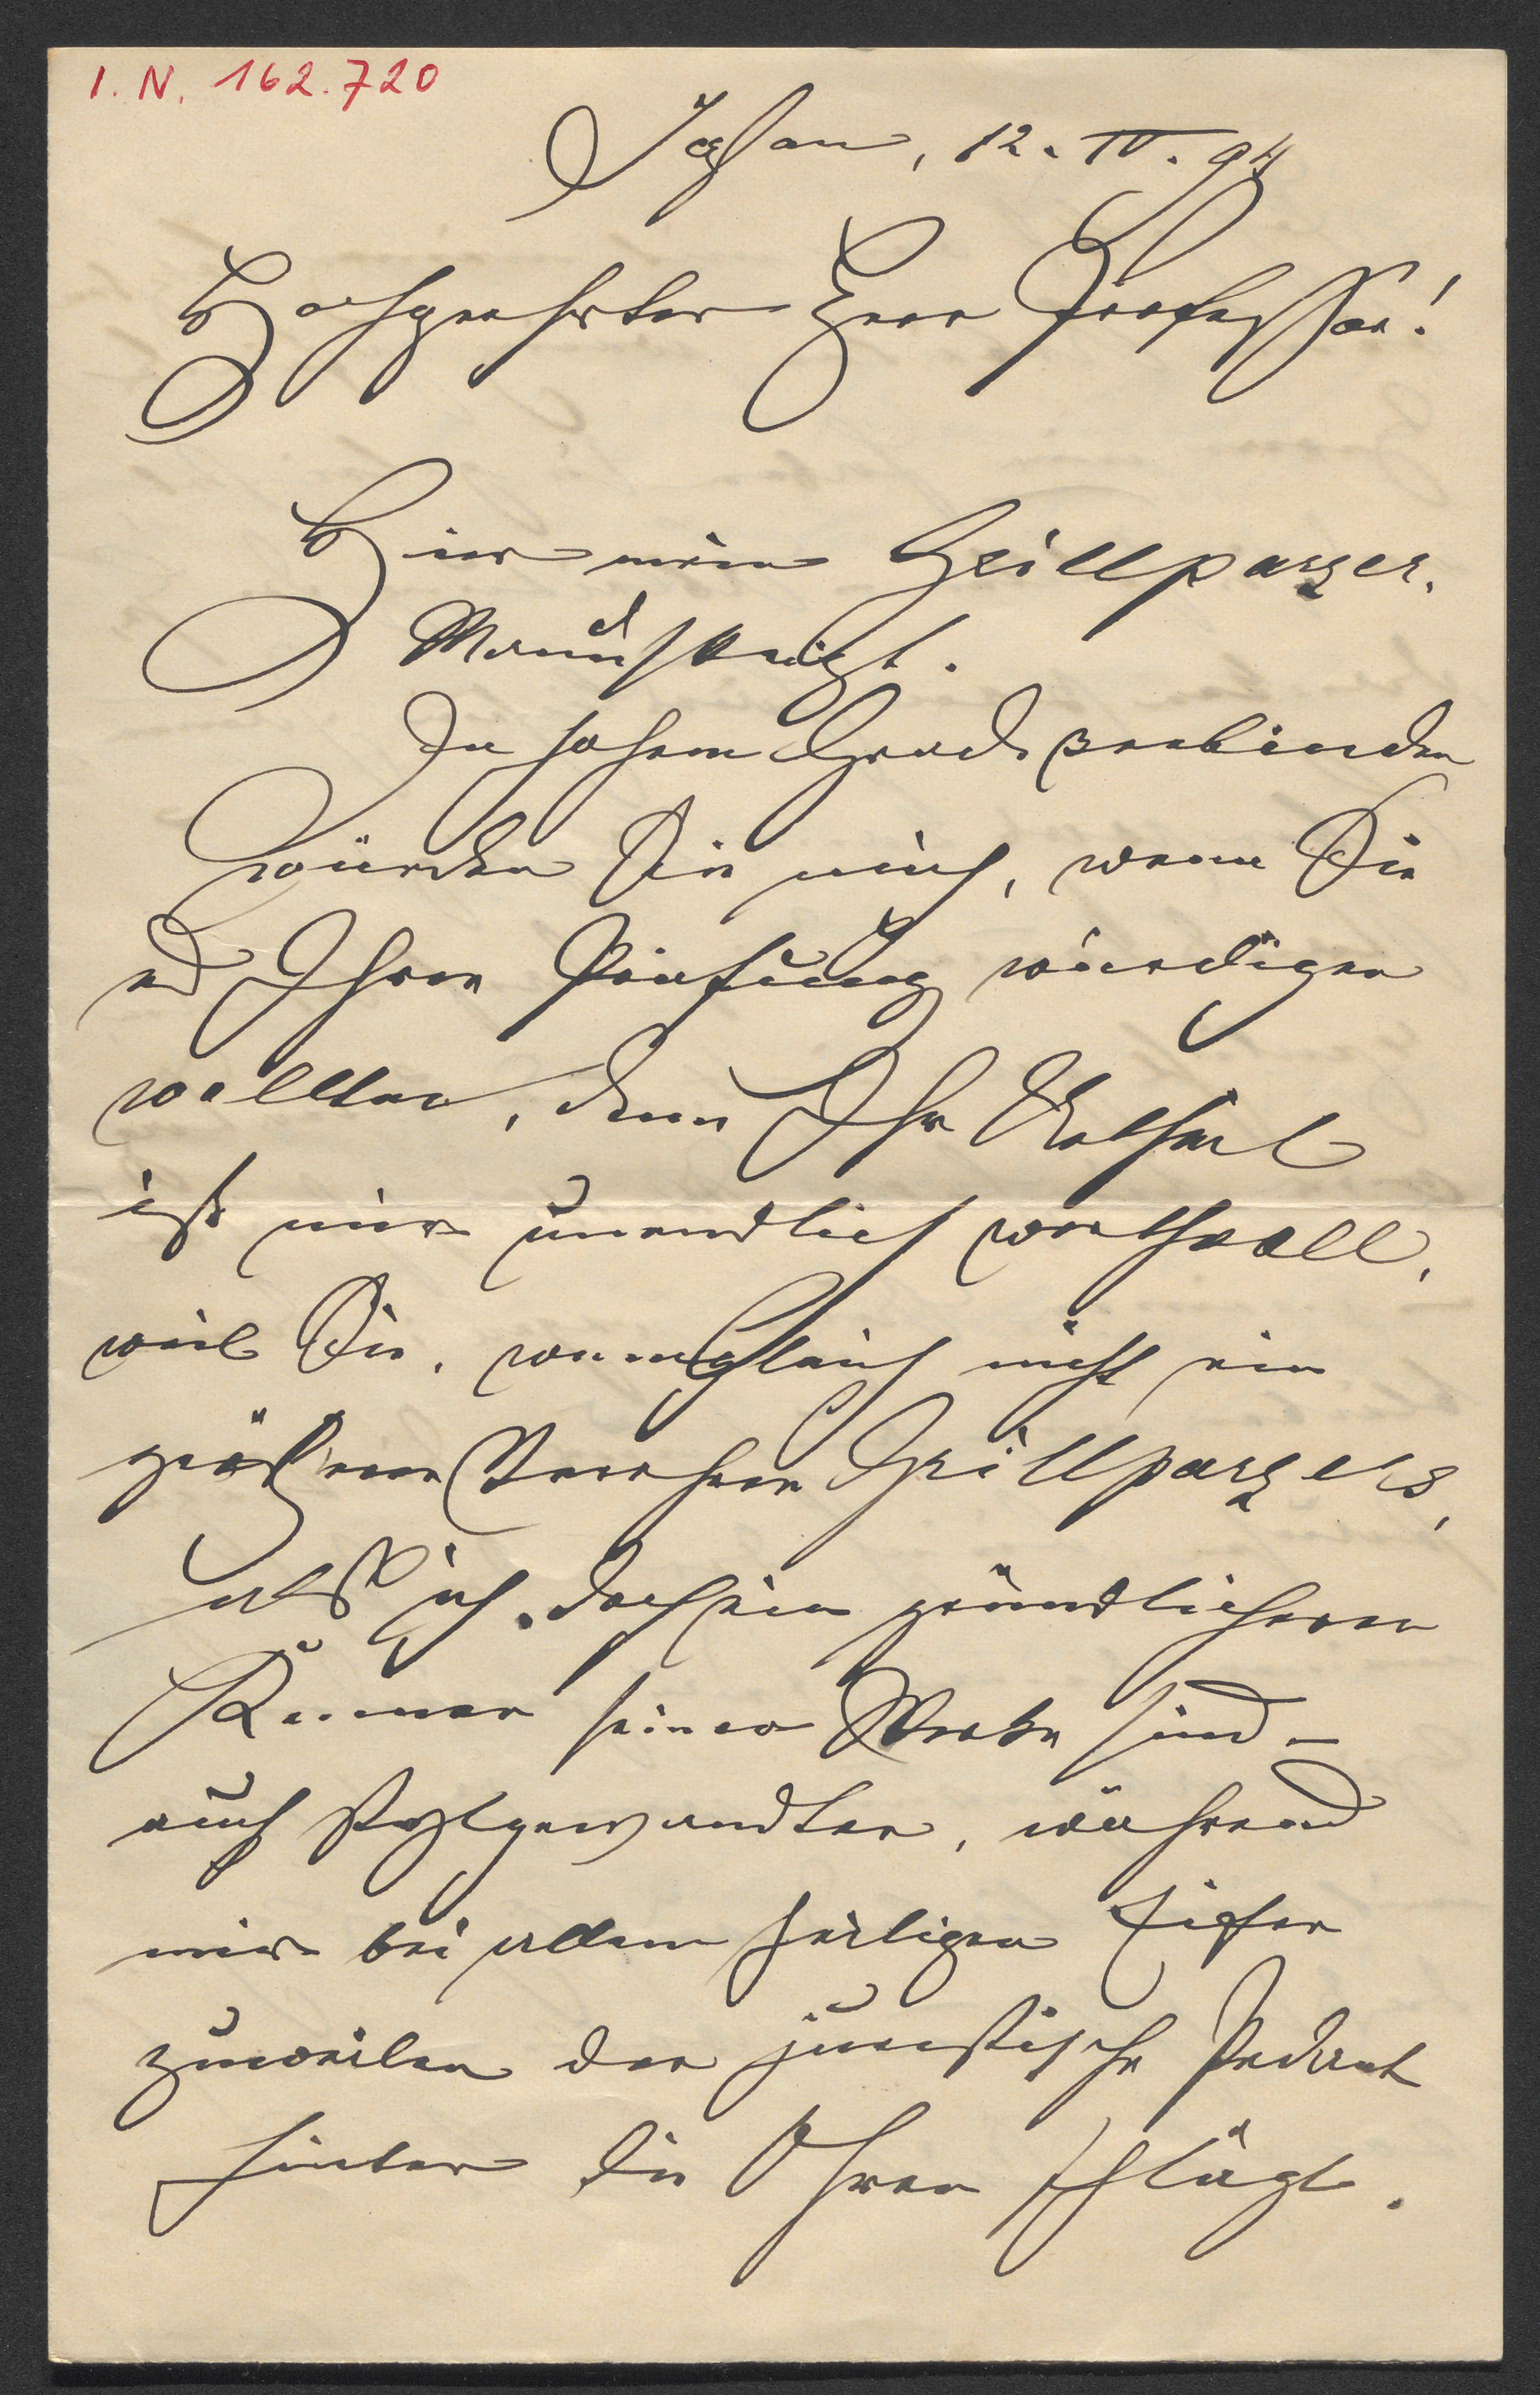 I. N. 162.720
Iglau, 12. IV. 94
Hochgeehrter Herr Professor!
Hier mein Grillparzer-
Manuskript.
In hohem Grade verbinden
würden Sie mich, wenn Sie
es Ihrer Prüfung würdigen
wollten, denn Ihr Urtheil
ist mir unendlich werthvoll,
weil Sie, wenngleich nicht ein
größerer Verehrer Grillparzers,
als ich, doch ein gründlicherer
Kenner seiner Werke sind –
auch stylgewandter, während
mir bei allem heiligen Eifer
zuweilen der juristische Pedant
hinter die Ohren schlägt.